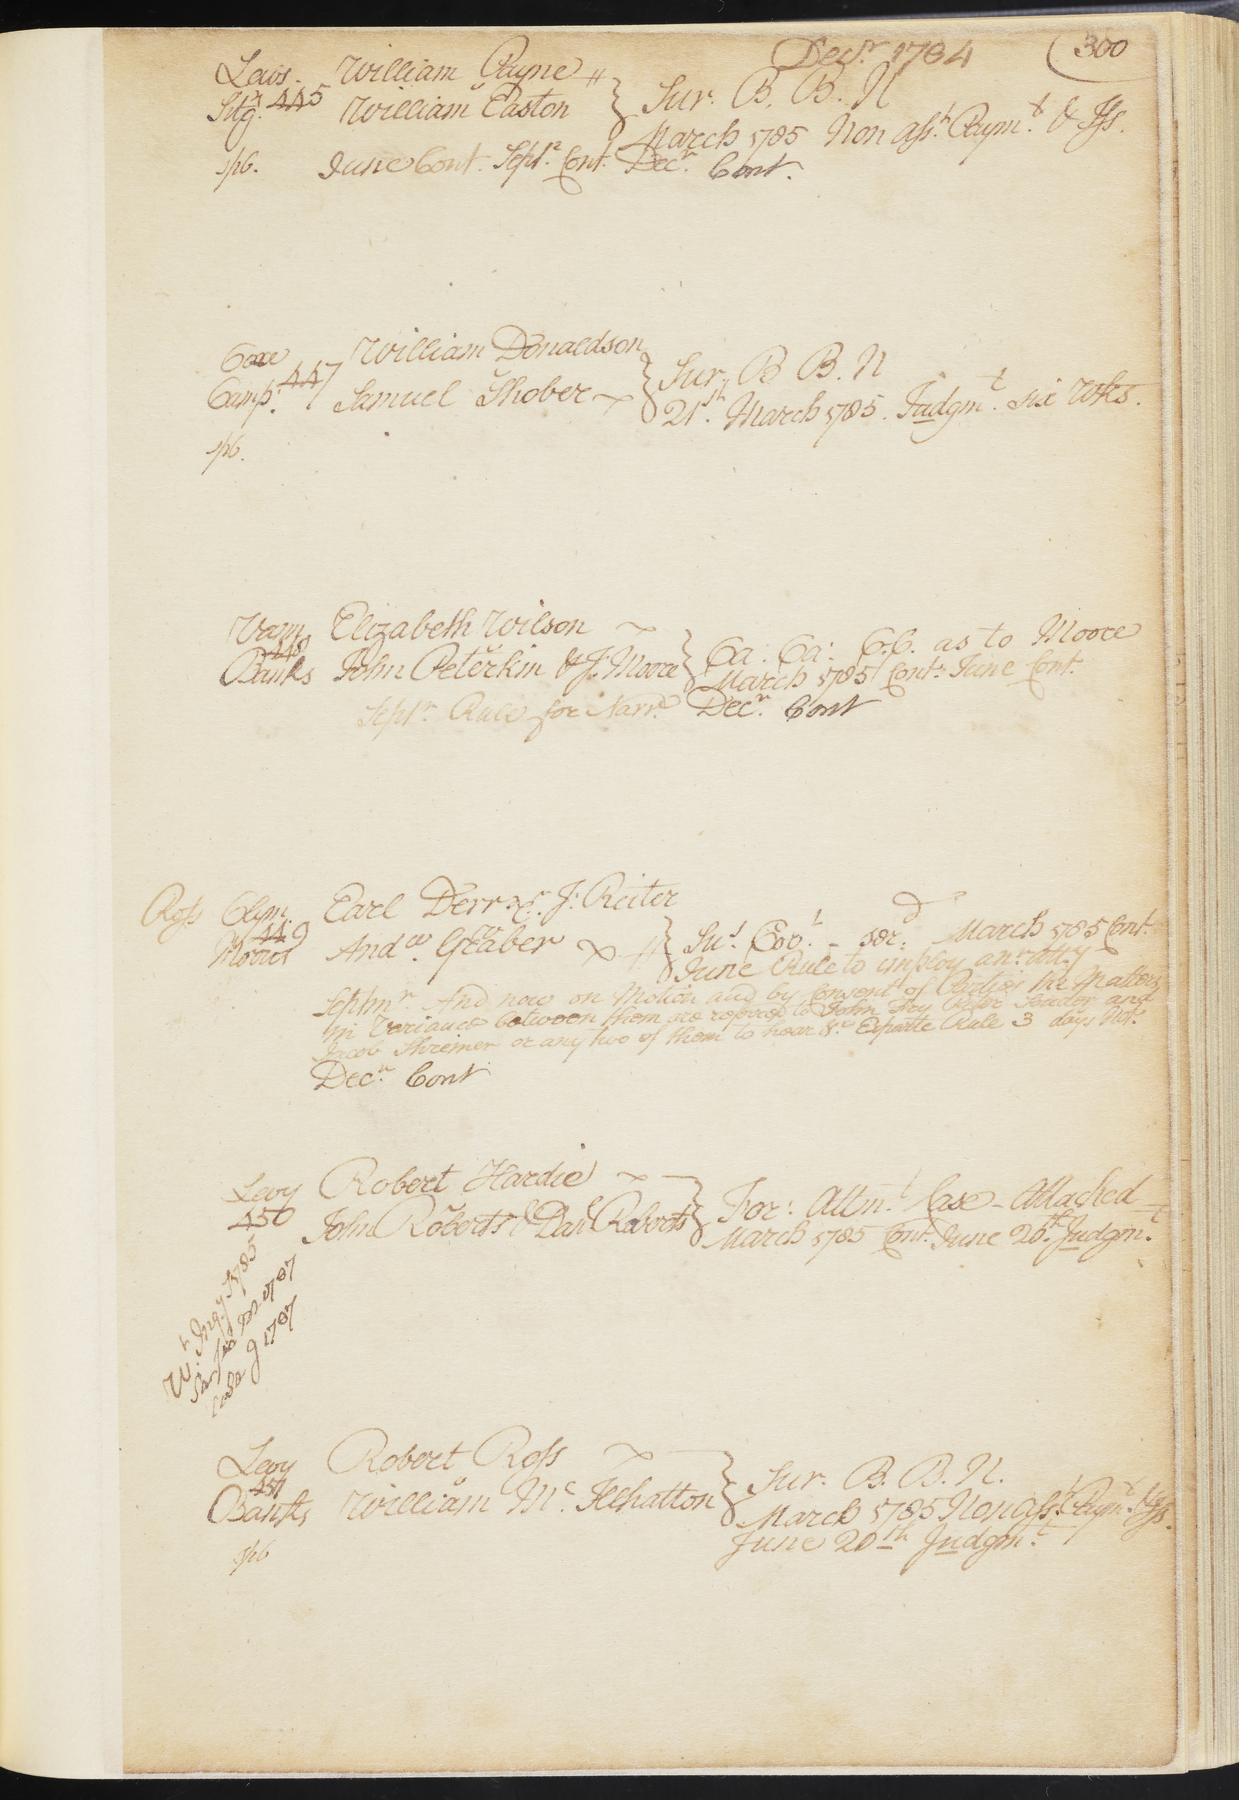 Decr. 1784 300
Lewis. William Payne
445
William Easton } Sur. B. B. N
March 1785 Non Asst. Paymt. & Iss.
spb. June Cont. Sept. Cont. Decr. Cont.
Coxe William Donaldson
447
Campt. Samuel Shober } Sur. B B. N
21st. March 1785. Judgmt. six Wks.
spb.
Vann Elizabeth Wilson
448
Banks John Peterkin & J. Moore } Ca. Ca. C.C. as to Moore
March 1785 Cont. June Cont.
Septr. Rule for Narr. Decr. Cont
Ross Clym. Earl Derr J. Reiter
449
Andw. Graber } March 1785 Cont.
June Rule to employ an Atty
Septmr. And now on Motion and by Consent of Parties the Matters
in Variance between them are referred to John Fry Peter and
Jacob Shreiner or any two of them to hear &c. Exparte Rule 3 days Not.
Decr. Cont
Levy Robert Hardie
450 John Roberts & Danl. Roberts } For. Attmt. Case - Attached
March 1785 Cont. June 20th. Judgmt.
1785
1787
1787
Levy Robert Ross
451
Banks William Mc. Ilhatton } Sur. B. B. N.
March 1785 Non Asst. Paymt. & Iss.
June 20th Judgmt.
spb